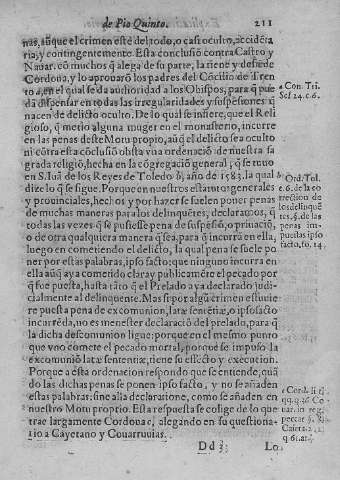 de Pio Quinto. 211
nas, aũque el crimen esté del todo, o casi oculto, accidéta
ria, y contingentemente. Esta conclusió contra Castro y
Nauar. cō muchos q̃ alega de su parte, la tiene y defiéde
Cordoua, y lo aprouarō los padres del Cōcilio de Tren
to a, en el qual se da authoridad a los Obispos, para q̃ pue
dã dispensar en todas las irregularidades y suspēsiones q̃
nacen de delicto oculto. De lo qual se infiere, que el Reli
gioso, q̃ metio alguna muger en el monasterio, incurre
en las penas deste Motu proprio, aũq̃ el delicto sea oculto
ni cōtra esta cōclusiō obsta vna ordenaciō de nuestra sa
grada religiō, hecha en la cōgregaciō general, q̃ se tuuo
en S. Iuã de los Reyes de Toledo b, año de 1583. la qual
dize lo q̃ se sigue. Porque en nuestros estatutos generales
y prouinciales, hechos y por hazer se suelen poner penas
de muchas maneras para los delinquētes, declaramos, q̃
todas las vezes q̃ se pusiesse pena de suspēsiō, o priuaciō,
o de otra qualquiera manera q̃ sea, para q̃ incurrã en ella,
luego en cometiendo el delicto, la qual pena se suele po
ner por estas palabras, ipso facto: que ninguno incurra en
ella aũq̃ aya cometido clara y publicamēte el pecado por
q̃ fue puesta, hasta tãto q̃ el Prelado aya declarado judi-
cialmente al delinquente. Mas si por algũ crimen estuuie
re puesta pena de excomunion, latæ sentētiæ, o ipso facto
incurrēda, no es menester declaraciō del prelado, para q̃
la dicha descomunion ligue: porque en el mesmo punto
que vno comete el pecado mortal, porque se impuso la
excomuniō latæ sententiæ, tiene su effecto y execution.
Porque a esta ordenacion respondo que se entiende, quã
do las dichas penas se ponen ipso facto, y no se añaden
estas palabras: sine alia declaratione, como se añaden en
nuestro Motu proprio. Esta respuesta se colige de lo que
trae largamente Cordoua c, alegando en su questiona-
rio a Cayetano y Couarruuias.
Dd 3 Lo
a Con. Tri.
Ses. 24. c. 6.
b Ord. Tol.
c. 6. de la co
rrection de
los delinquẽ
tes. §. de las
penas im-
puestas ips
facto, fo. 14.
c Cord. li.
qq. q. 26 Co
uar. in reg.
peccat.
Caieta. 2. 2.